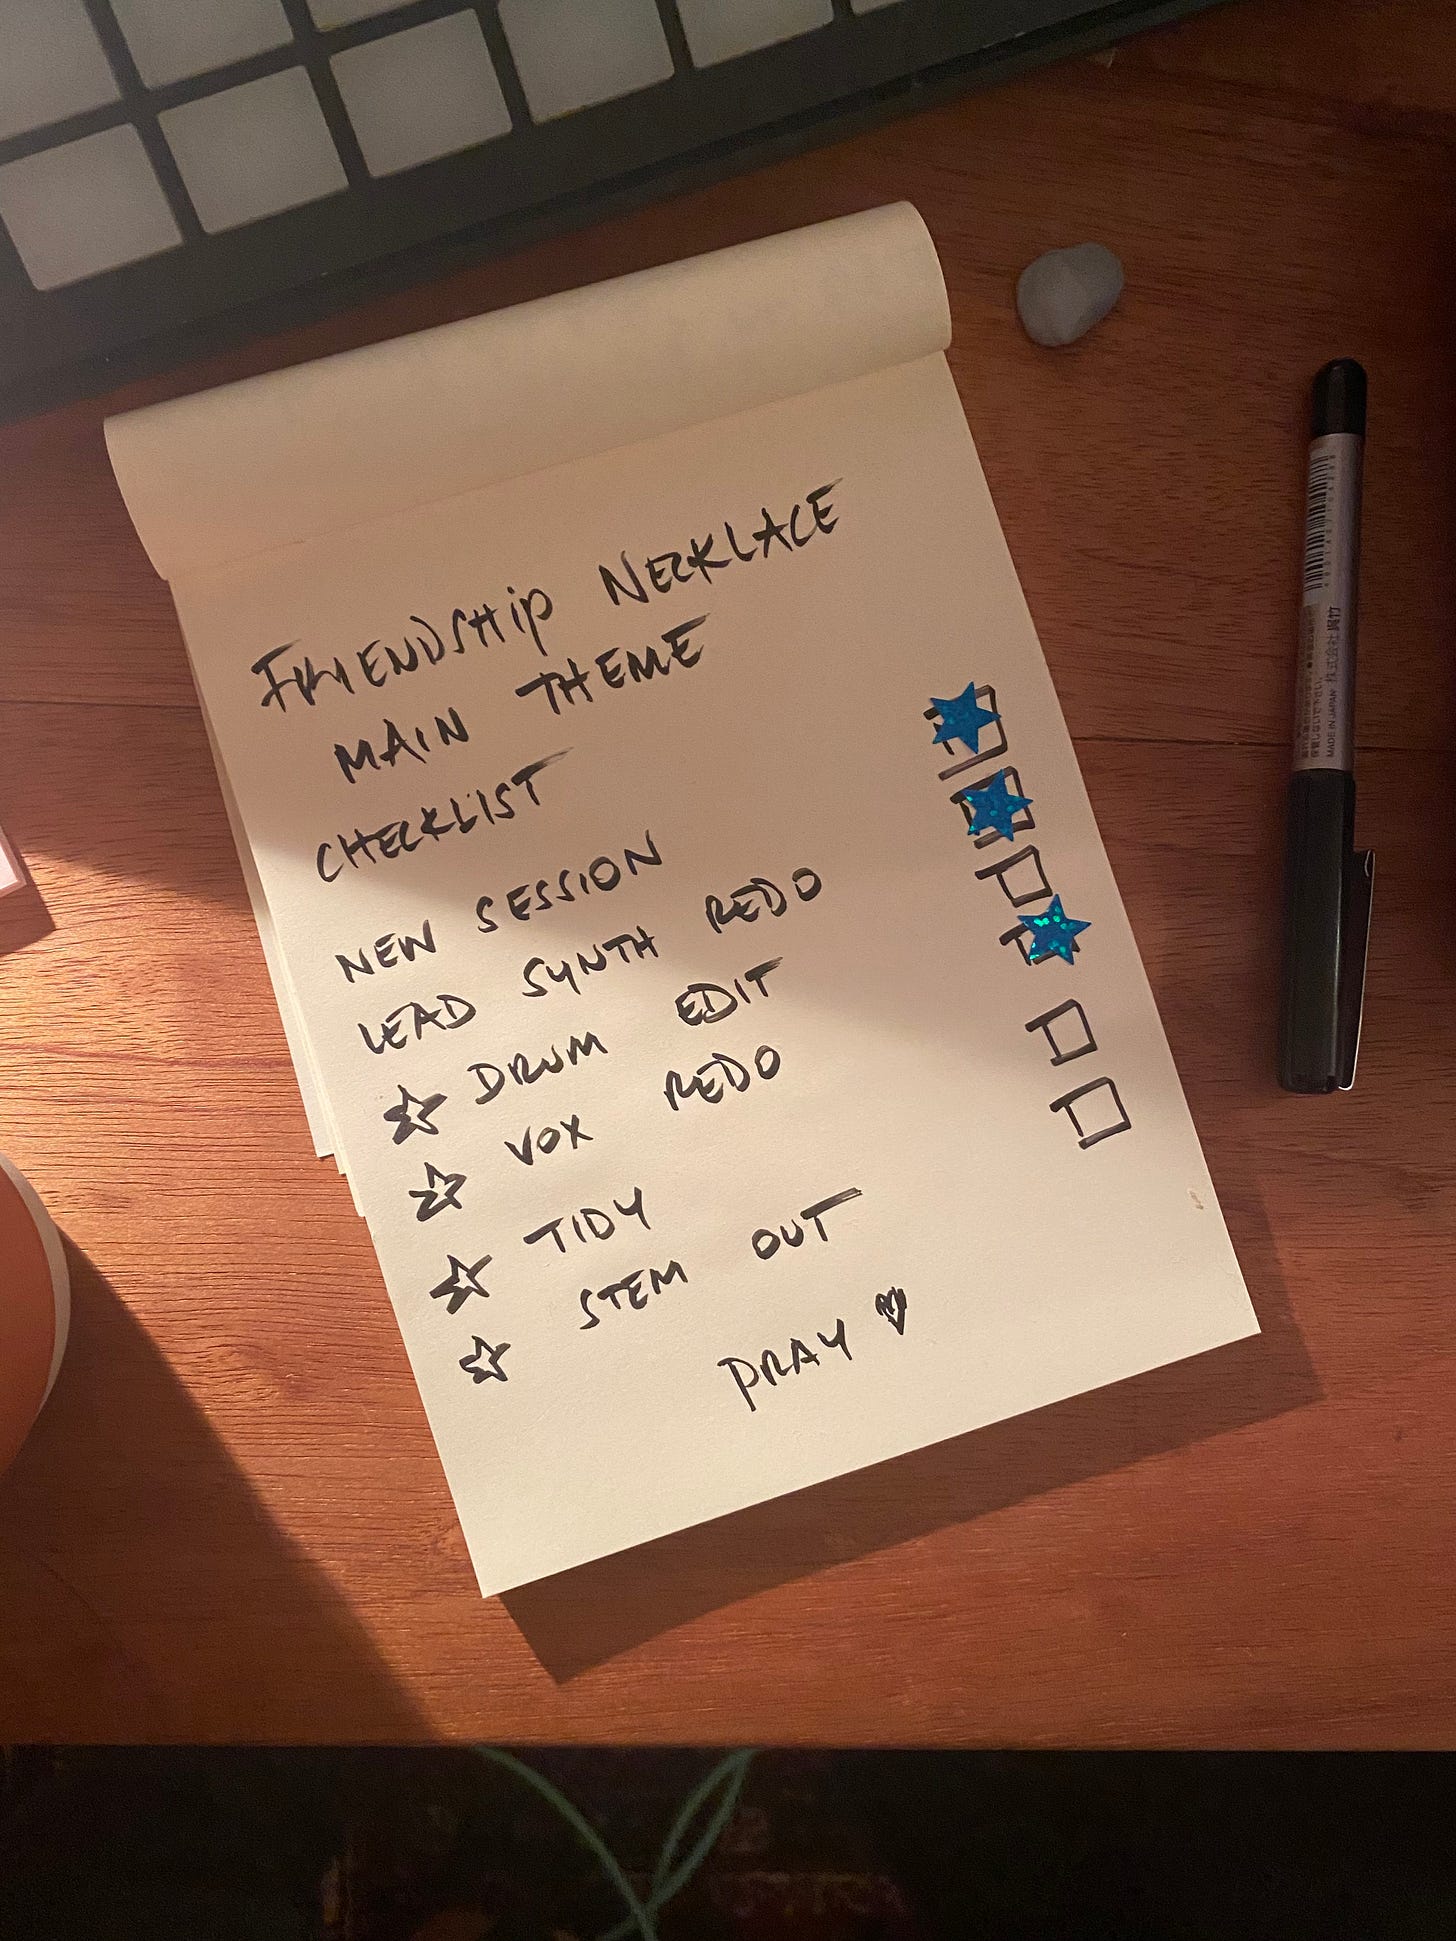 FRIENDSHIP NECKLACE
MAIN THEME
CHECKLIST
NEW SESSION
LEAD SYNTH REDO
☆ DRUM EDIT
☆ VOX REDO
☆ TIDY
☆ STEM OUT
PRAY ♥
MADE IN JAPAN 株式会社 呉竹